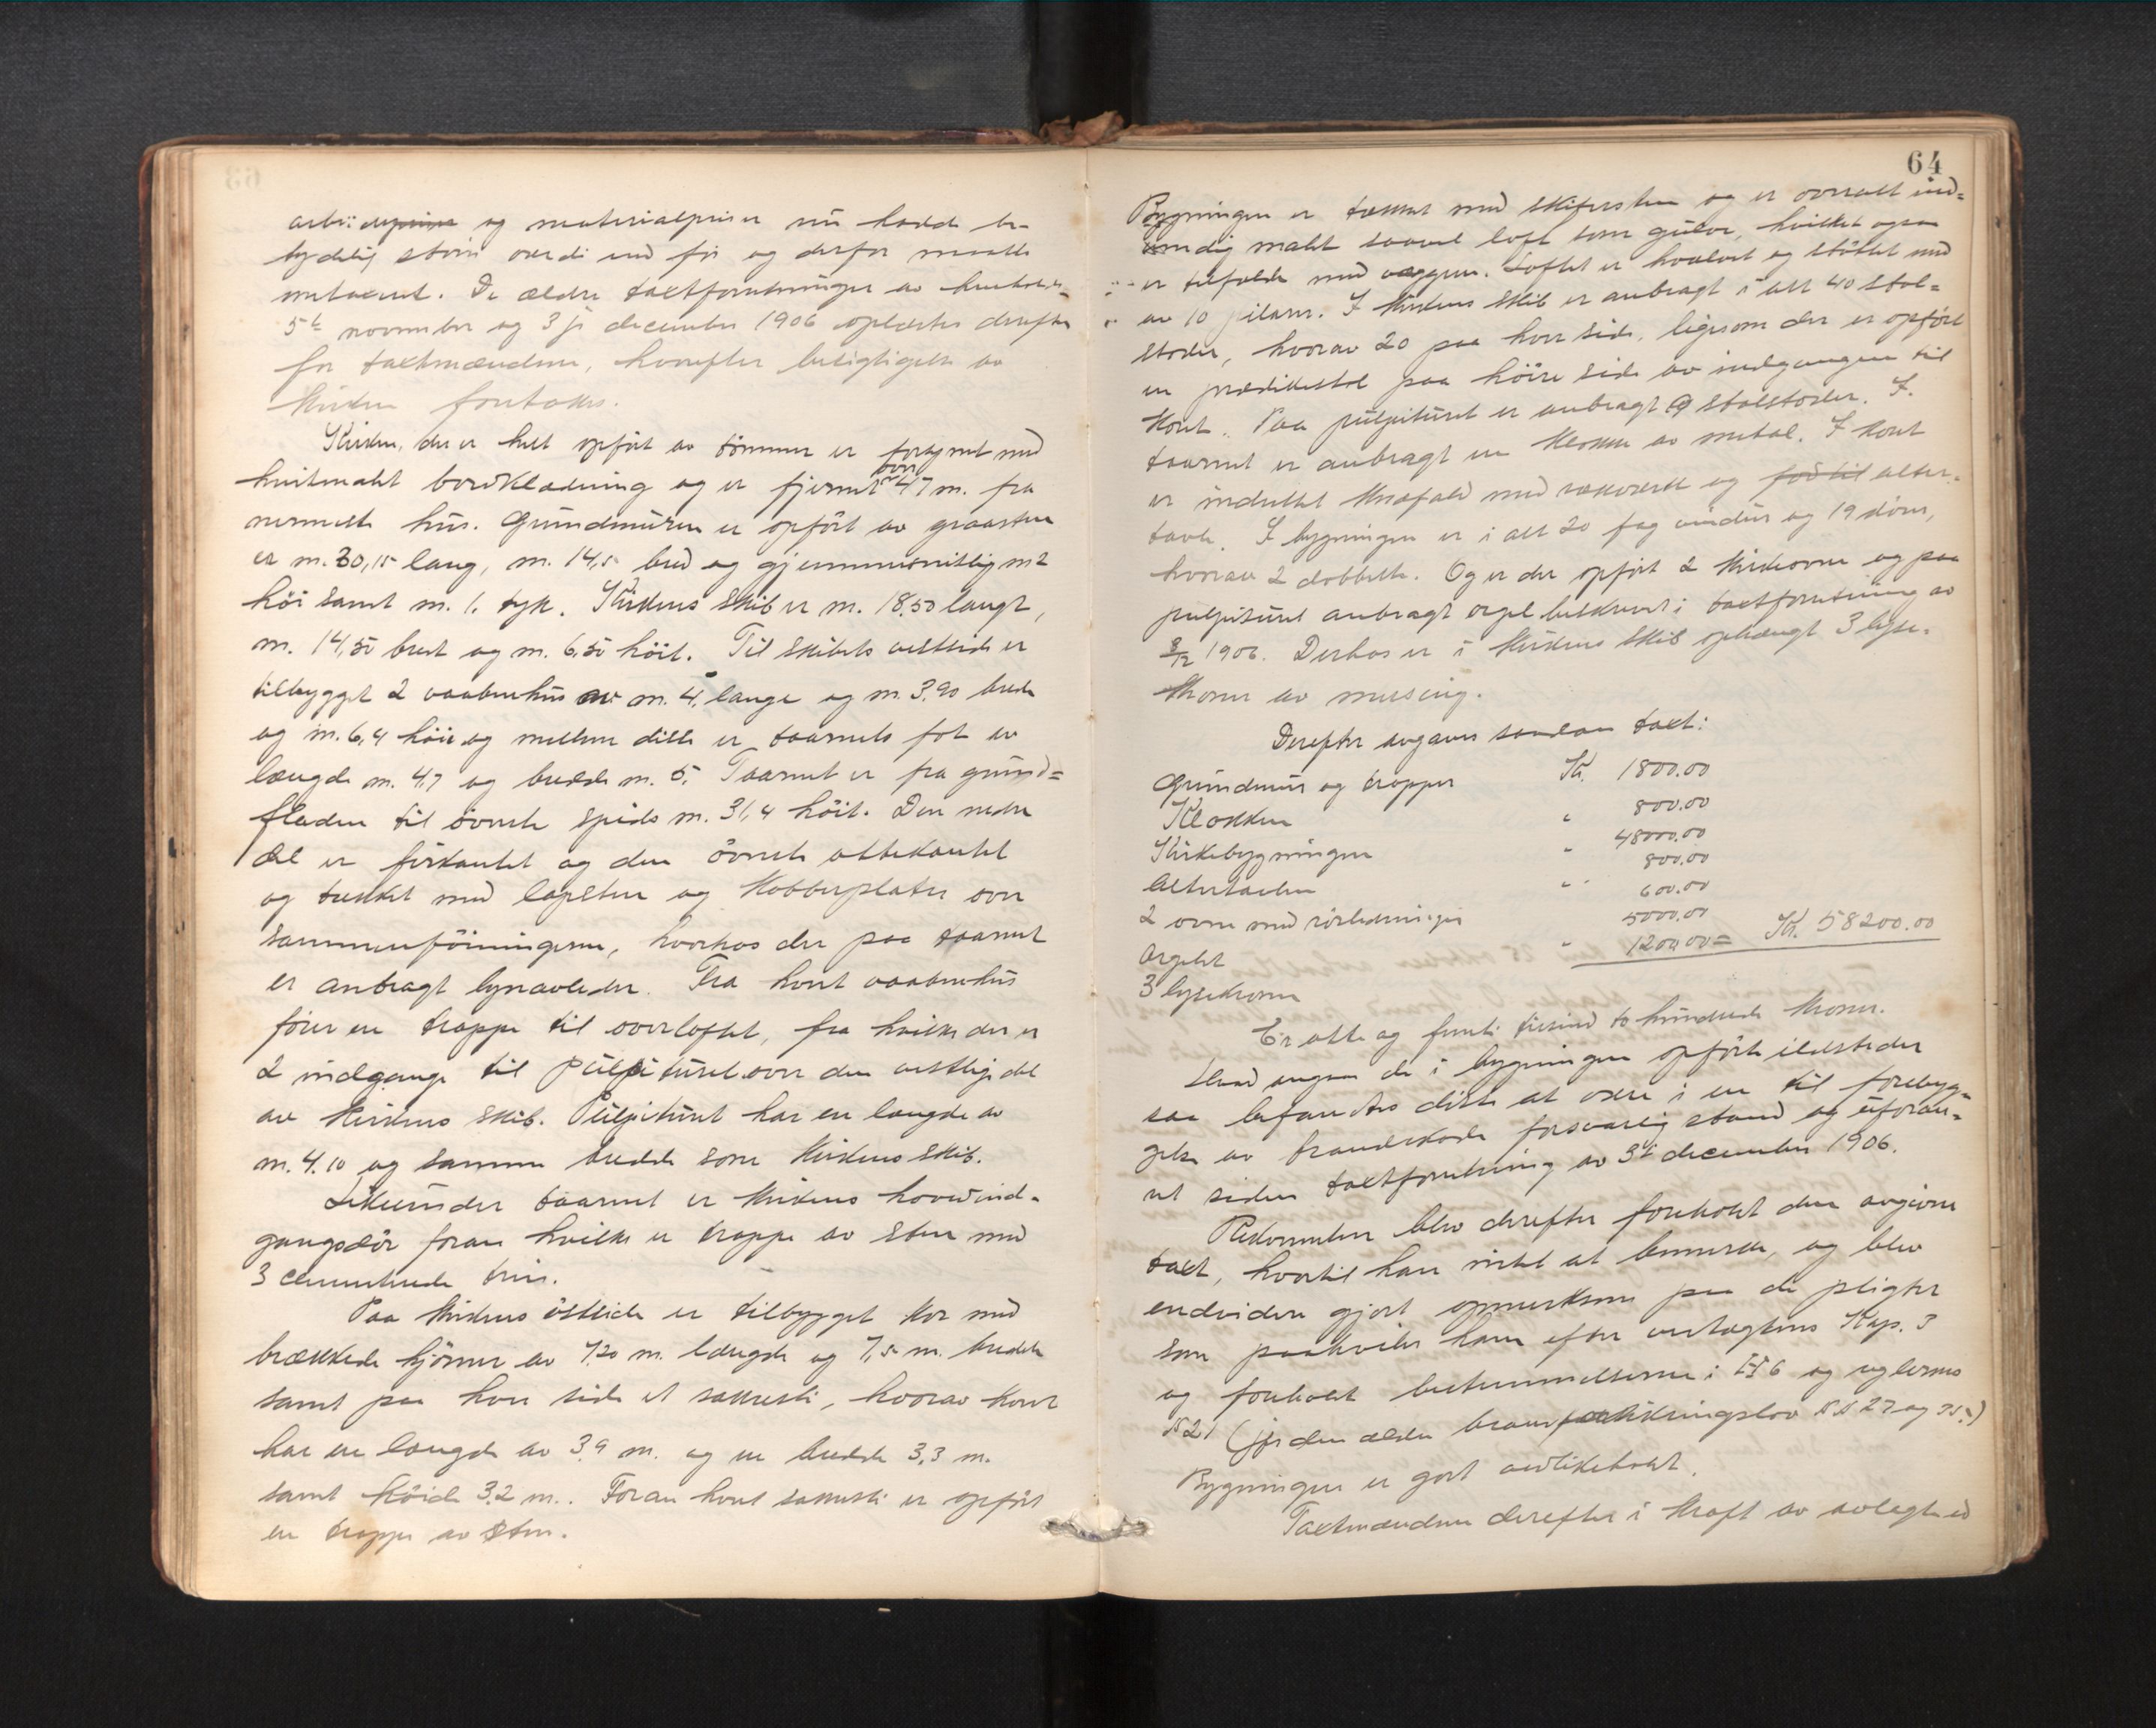 64
arbeidspriser og materialpriser nu hadde be-
tydelig större værdi end før og derfor maatte
omtaxeret. De ældre taxtforretninger av henholdsvis
5te november og 3die december 1906 oplæstes derefter
for taxtmændene, hvorefter besigtigelse av
kirken foretokes.
Kirken, der er helt opfört av tömmer er forsynet med
hvitmalet bordklædning og er fjernet over 47 m. fra
nærmeste hus. Grundmuren er opfört av graasten
er m. 30,15 lang, m. 14,5 bred og gjennemsnitlig m 2
höi samt m. 1. tyk. Kirkens skib er m. 18,50 langt,
m. 14,50 bredt og m. 6,50 höit. Til skibets vestside er
tilbygget 2 vaabenhus av m. 4, lange og m. 3,90 brede
og m. 6,4 höie og mellem disse er taarnets fot av
længde m. 4,7 og bredde m. 5. Taarnet er fra grund=
fladen til överste spids m. 31,4 höit. Den nedre
del er firkantet og den överste ottekantet
og tækket med lapsten og kobberplater over
sammenföiningerne, hvorhos der paa taarnet
er anbragt lynavleder. Fra hvert vaabenhus
förer en trappe til overloftet, fra hvilke der er
2 indgange til pulpituret over den vestlige del
av kirkens skib. Pulpituret har en længde av
m. 4.10 og samme bredde som kirkens skib.
Likeunder taarnet er kirkens hovedind-
gangsdör foran hvilke er trappe av sten med
3 cementerede trin.
Paa kirkens östside er tilbygget kor med
brækkede hjörner av 7,20 m. længde og 7,5 m. bredde
samt paa hver side et sakresti, hvorav hvert
har en længde av 3,9 m. og en bredde 3,3 m.
samt höide 3,2 m.. Foran hvert sakresti er opfört
en trappe av sten.
Bygningen er tækket med skifersten og er overalt ind=
vendig malet saavel loft som gulve, hvilket ogsaa
er tilfælde med væggene. Loftet er hvælvet og stöttet med
av 10 pilarer. I kirkens skib er anbragt i alt 40 stol=
stader, hvorav 20 paa hver side, ligesom der er opfört
en prædikestol paa höire side av indgangen til
koret. Paa pulpituret er anbragt 9 stolstader. I
taarnet er anbragt en klokke av metal. I koret
er indrettet knæfald med rækverk og fod til alter-
tavle. I bygningen er i alt 20 fag vinduer og 19 döre,
hvorav 2 dobbelte. Og er der opfört 2 kirkeovne og paa
pulpituret anbragt orgel beskrevet i taxtforretning av
3/12 1906. Derhos er i kirkens skib ophængt 3 lyse-
kroner av messing.
Derefter avgaves saadan taxt:
Grundmur og trapper Kr. 1800.00
Klokken " 800.00
Kirkebygningen " 48000.00
Altertavlen " 800.00
2 ovne med rörledninger 600.00
Orgelet 5000.00
3 lysekroner " 1200.00 = Kr. 58200.00
Er otte og femti tusind to hundrede kroner.
Hvad angaar de i bygningen opförte ildsteder
saa befandtes disse at være i en til forebyg-
gelse av brandskade forsvarlig stand og uforan-
ret siden taxtforretning av 3die december 1906.
Rekvirenten blev derefter foreholdt den avgivne
taxt, hvortil han intet at bemerke, og blev
endvidere gjort opmerksom paa de pligter
som paahviler ham efter vedtægtens Kap. 3
og foreholdt bestemmelserne i § 6 og reglernes
§ 21 (jfr. den ældre brandforsikringslov §§ 27 og 35.)
Bygningen er godt vedlikeholdt.
Taxtmændene derefter i kraft av avlagt ed